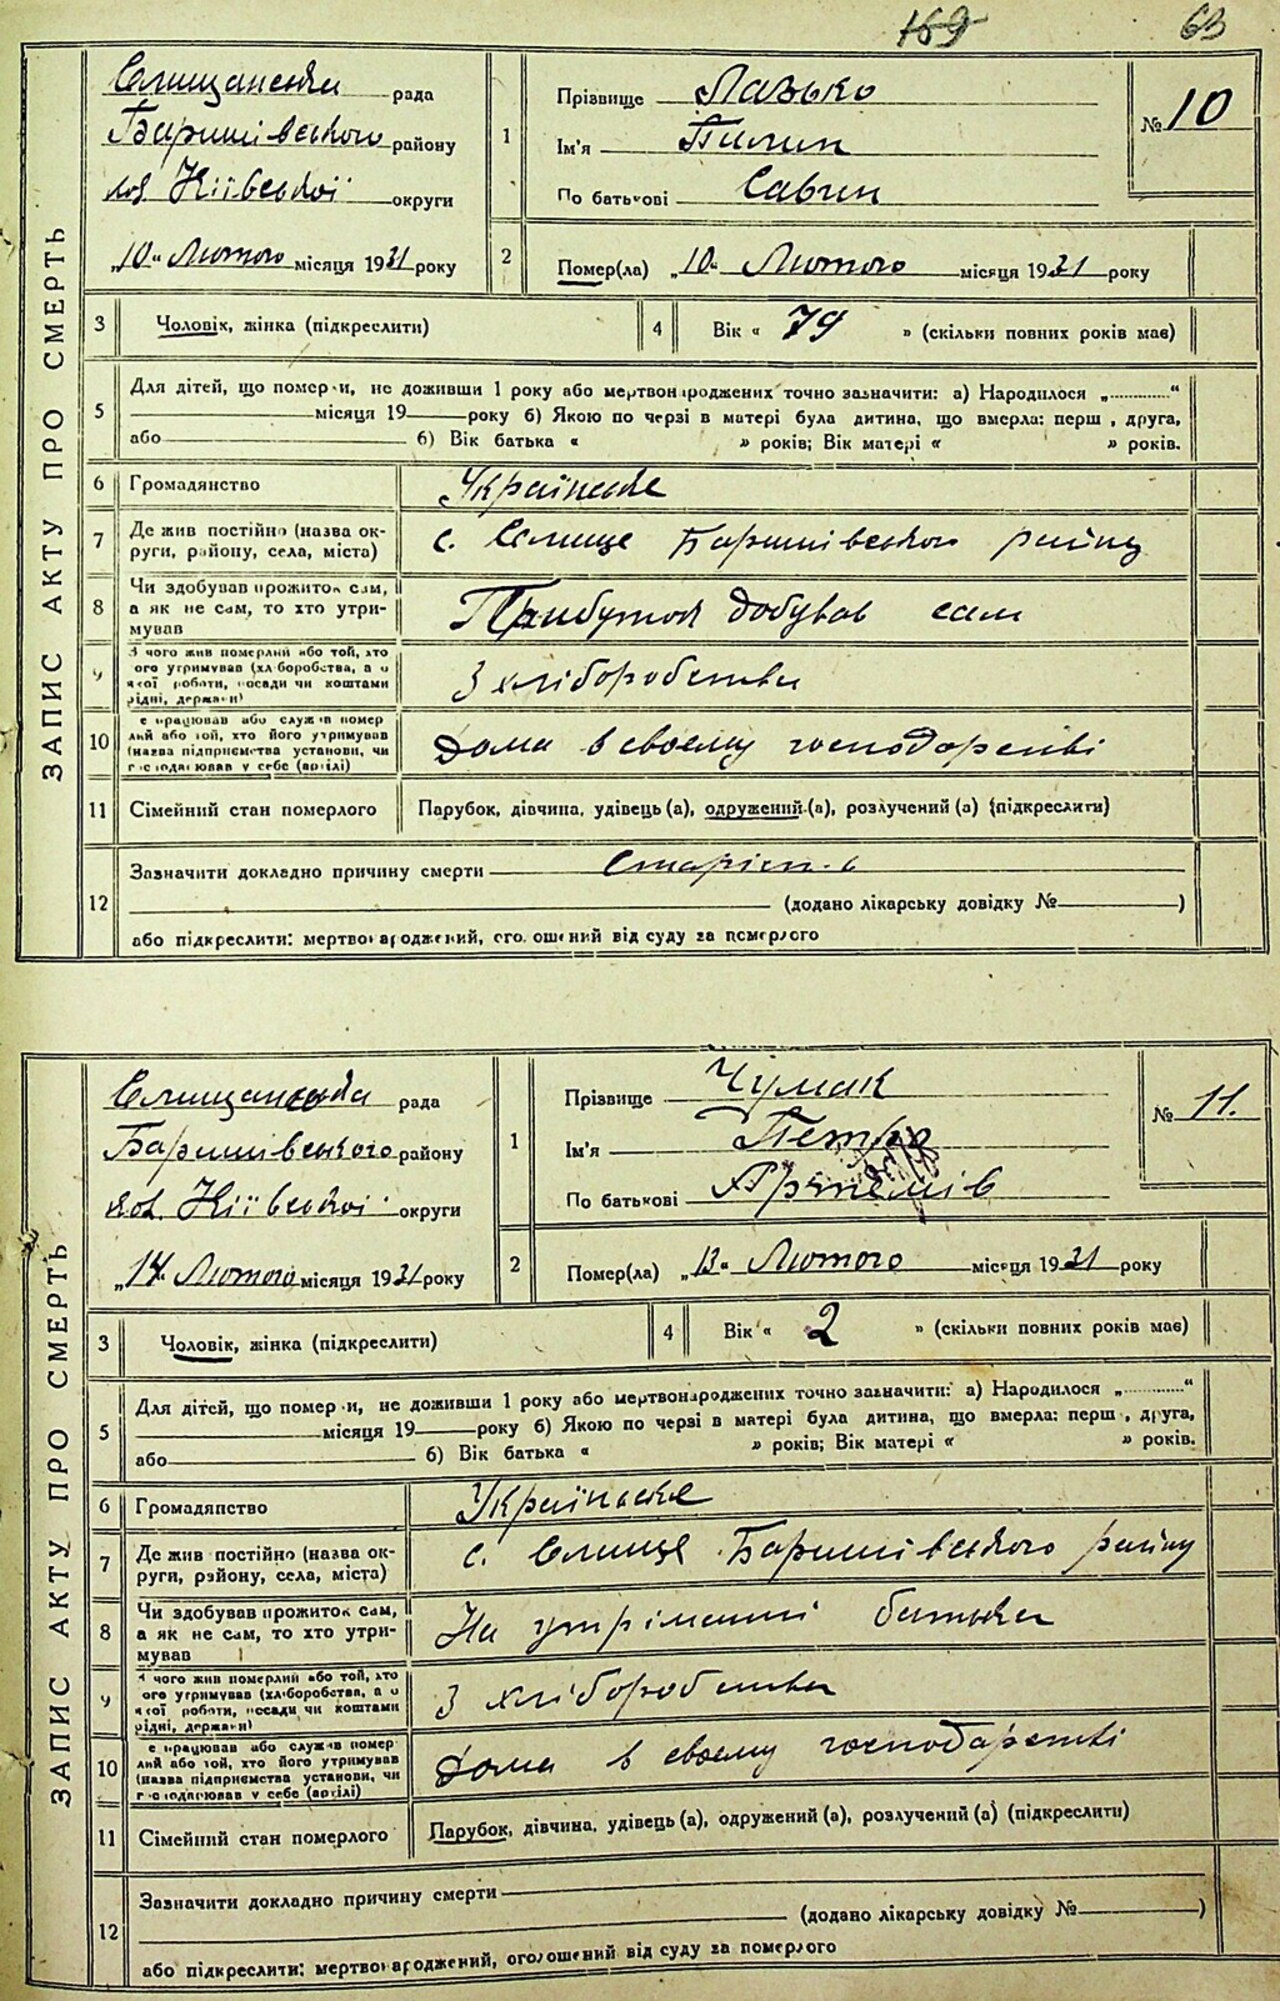 169 63
ЗАПИС АКТУ ПРО СМЕРТЬ
Селищанська рада
Баришівського району
Київської округи
„10“ Лютого місяця 1931 року
1
Прізвище Лазько
Ім'я Пилип
По батькові Савин
№ 10
2
Помер(ла) „10“ Лютого місяця 1931 року
3 Чоловік, жінка (підкреслити)
4 Вік « 79 » (скільки повних років має)
5
Для дітей, що померли, не доживши 1 року або мертвонароджених точно зазначити: а) Народилося „ “
місяця 19 року б) Якою по черзі в матері була дитина, що вмерла: перша, друга,
або б) Вік батька « » років; Вік матері « » років.
6 Громадянство Українське
7 Де жив постійно (назва ок-
руги, району, села, міста)
с. Селище Баришівського району
8 Чи здобував прожиток сам,
а як не сам, то хто утри-
мував
Прибуток добував сам
9 З чого жив померлий або той, хто
його утримував (хліборобства, а о
якої роботи, посади чи коштами
рідні, держави)
З хліборобства
10 Де працював або служив помер
лий або той, хто його утримував
(назва підприємства установи, чи
господарював у себе (артілі)
Дома в своему господарстві
11 Сімейний стан померлого Парубок, дівчина, удівець (а), одружений (а), розлучений (а) (підкреслити)
12
Зазначити докладно причину смерти Старість
(додано лікарську довідку № )
або підкреслити: мертвонароджений, оголошений від суду за померлого
ЗАПИС АКТУ ПРО СМЕРТЬ
Селищанська рада
Баришівського району
Київської округи
„14“ Лютого місяця 1931 року
1
Прізвище Чумак
Ім'я Петро
По батькові Артемів
№ 11.
2
Помер(ла) „13“ Лютого місяця 1931 року
3 Чоловік, жінка (підкреслити)
4 Вік « 2 » (скільки повних років має)
5
Для дітей, що померли, не доживши 1 року або мертвонароджених точно зазначити: а) Народилося „ “
місяця 19 року б) Якою по черзі в матері була дитина, що вмерла: перша, друга,
або б) Вік батька « » років; Вік матері « » років.
6 Громадянство Українське
7 Де жив постійно (назва ок-
руги, району, села, міста)
с. Селище Баришівського району
8 Чи здобував прожиток сам,
а як не сам, то хто утри-
мував
На утріманні батька
9 З чого жив померлий або той, хто
його утримував (хліборобства, а о
якої роботи, посади чи коштами
рідні, держави)
З хліборобства
10 Де працював або служив помер
лий або той, хто його утримував
(назва підприємства установи, чи
господарював у себе (артілі)
Дома в своему господарстві
11 Сімейний стан померлого Парубок, дівчина, удівець (а), одружений (а), розлучений (а) (підкреслити)
12
Зазначити докладно причину смерти
(додано лікарську довідку № )
або підкреслити: мертвонароджений, оголошений від суду за померлого